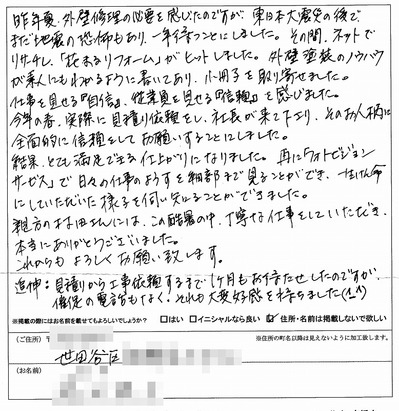 昨年夏、外壁修理の必要を感じたのですが、東日本大震災の後で、
まだ地震の恐怖もあり、一年待つことにしました。その間、ネットで
リサーチし、「花まるリフォーム」がヒットしました。外壁塗装のノウハウ
が素人にもわかるように書いてあり、小冊子を取り寄せました。
仕事を見せる『自信』、従業員を見せる『信頼』を感じました。
今年の春、実際に見積り依頼をし、社長が来て下さり、そのお人柄に
全面的に信頼をしてお願いすることにしました。
結果、とても満足できる仕上がりになりました。再に「フォトビジョン
サービス」で日々の仕事のようすを細部まで見ることができ、一生けん命
にしていただいた様子を伺い知ることができました。
親方のさんには、この酷暑の中、丁寧な仕事をしていただき、
本当にありがとうございました。
これからもよろしくお願い致します。
追伸：見積りから工事依頼するまで1ヶ月もお待たせしたのですが、
催促の電話もなく、それも大変好感を持ちました(^^)
※掲載の際にはお名前を載せてもよろしいでしょうか？ □はい □イニシャルなら良い ☑住所・名前は掲載しないで欲しい
(ご住所) 〒 ※住所の町名以降は見えないように加工致します。
世田谷区
(お名前)